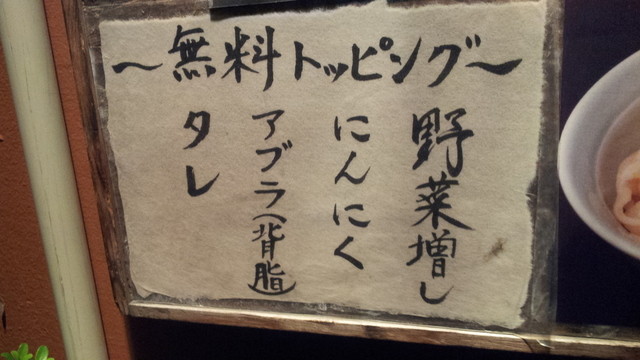 ～無料トッピング～
野菜増し
にんにく
アブラ(背脂)
タレ